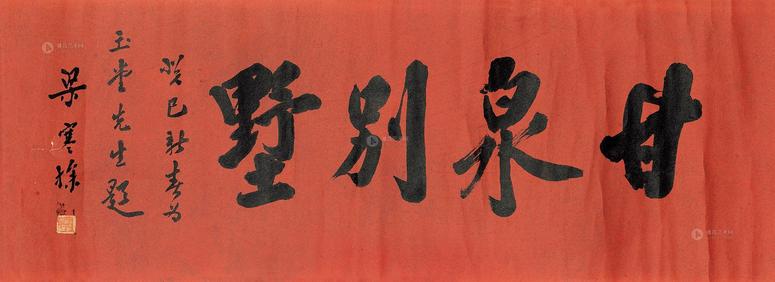 甘泉別墅
癸巳新春為
玉堂先生題
梁寒操